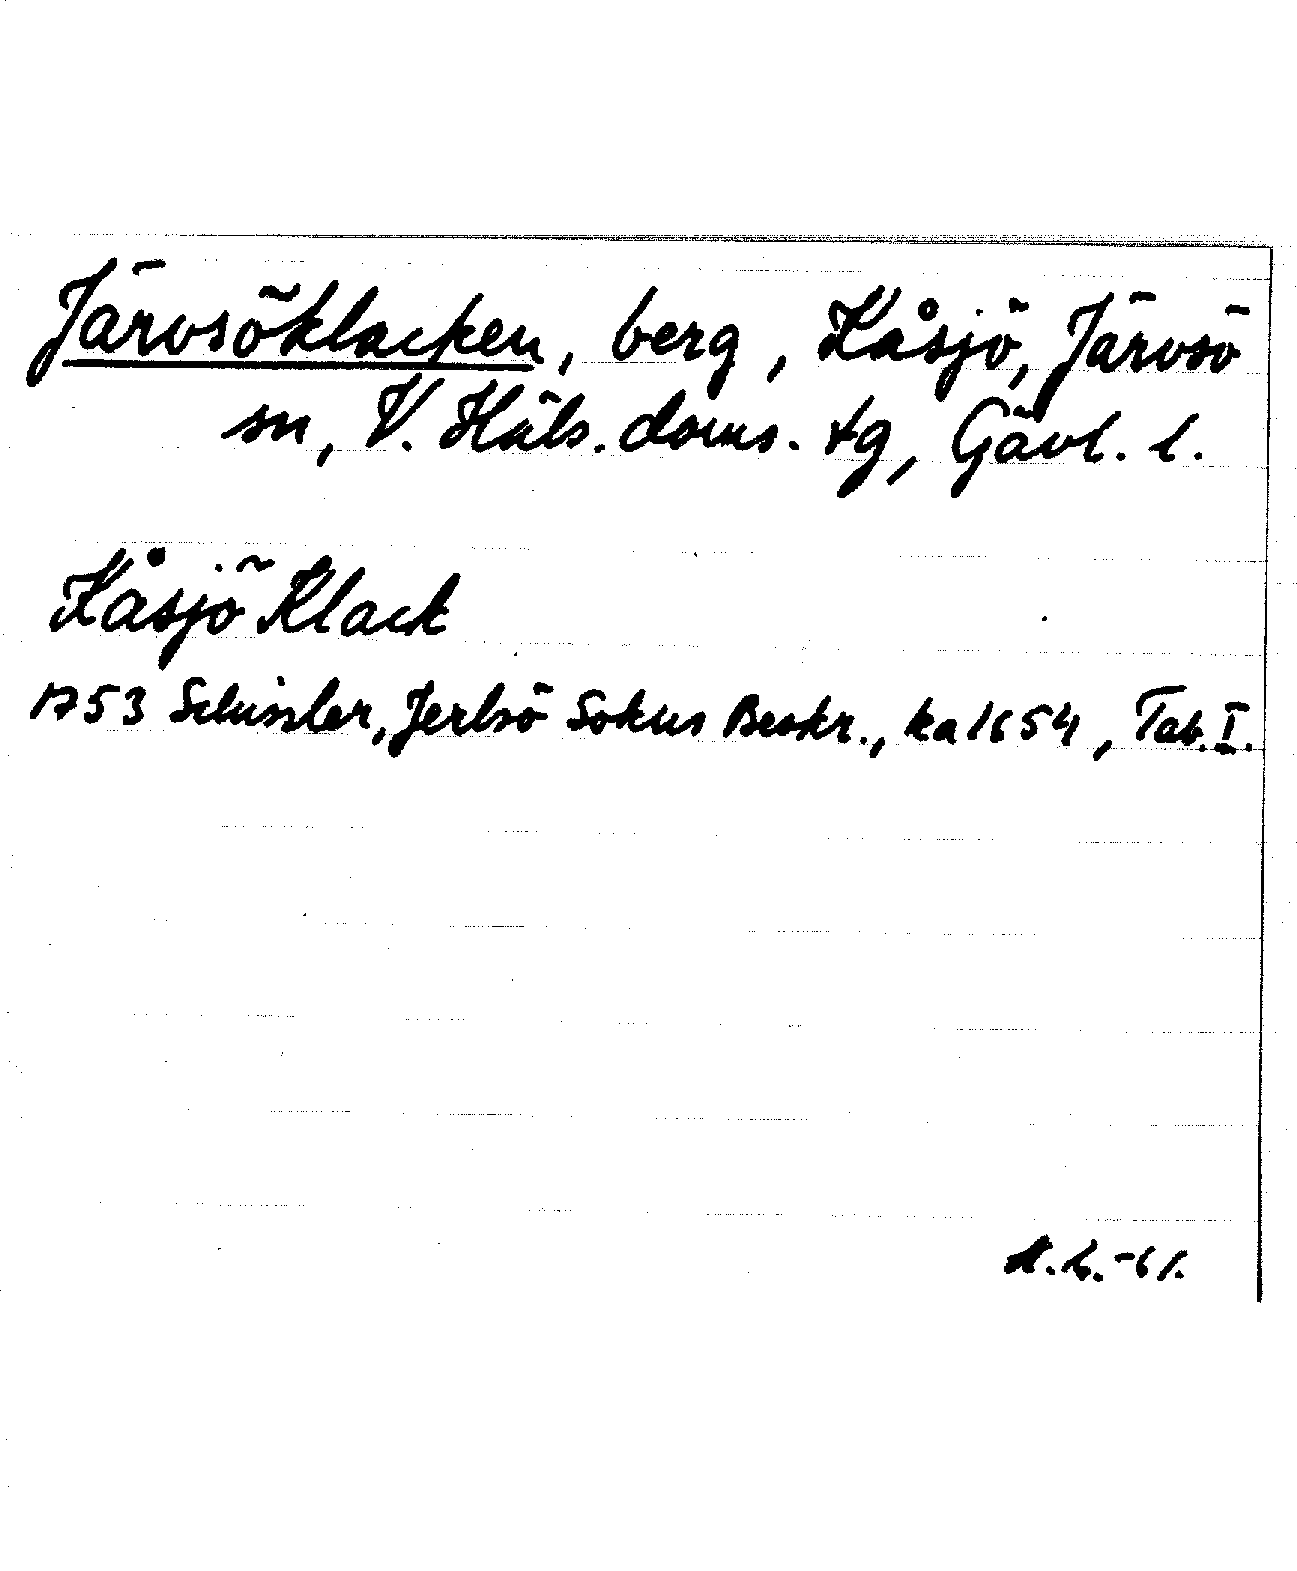 Järvsöklacken, berg, Kåsjö, Järvsö
sn, V. Häls. doms. tg, Gävl. l.
Kåsjö Klack
1753 Schissler, Jerbsö Sokns Beskr., ka 1654, Tab. I.
-61.